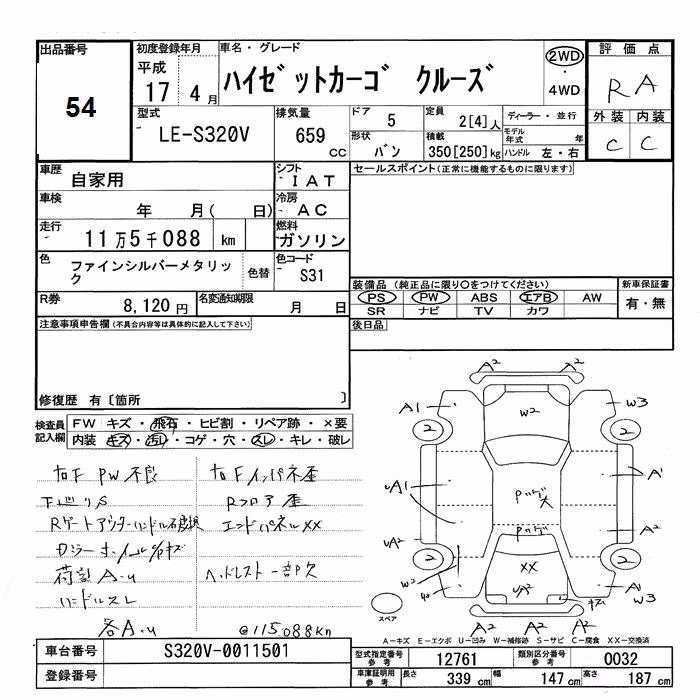 出品番号
54
初度登録年月
平成
17 4月
車名・グレード
ハイゼットカーゴ クルーズ
2WD
・
4WD
評価点
R A
外装 内装
C C
型式
LE-S320V
排気量
659 CC
ドア 5
形状 バン
定員 2[4]人
積載 350[250]kg
ディーラー・並行
モデル年式 年
ハンドル 左・右
車歴 自家用
シフト IAT
車検 年 月( 日)
冷房 AC
走行 11万5千088 km
燃料 ガソリン
色 ファインシルバーメタリック
色替
色コード S31
R券 8,120円
名変通知期限 月 日
セールスポイント(正常に機能するものに限ります)
装備品(純正品に限り○をつけてください)
PS PW ABS エアB AW
SR ナビ TV カワ
新車保証書
有・無
後日品
注意事項申告欄(不具合内容等は具体的に記入して下さい)
修復歴 有〔箇所 〕
検査員記入欄
FW キズ・飛石・ヒビ割・リペア跡・×要
内装 キズ・汚レ・コゲ・穴・スレ・キレ・破レ
右F PW不良
下廻りS
荷室A.u
ハンドルスレ
各A.u
右Fインパネ歪
Rフロア歪
エンドパネルXX
ヘッドレスト一部欠
@115,088Km
A² A²
A1 W2 W3
2 2
A1 A1
A² A²
XX
2 2
W² W3
A² A² A²
スペア
A-キズ E-エクボ U-凹み W-補修跡 S-サビ C-腐食 XX-交換済
車台番号 S320V-0011501
登録番号
型式指定番号 参考 12761
類別区分番号 参考 0032
車庫証明用 参考 長さ 339cm 幅 147cm 高さ 187cm